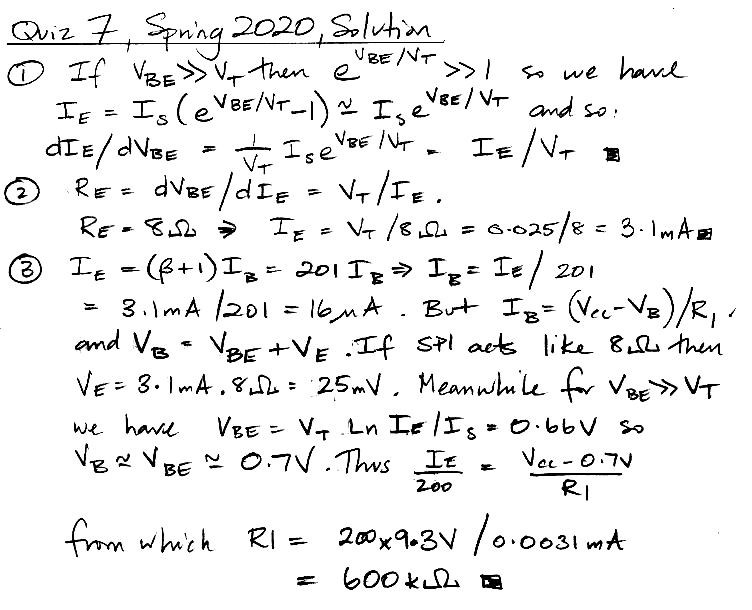 Quiz 7, Spring 2020, Solution
① If VBE >> VT then e^VBE/VT >> 1 so we have
IE = Is(e^VBE/VT - 1) ≃ Is e^VBE/VT and so:
dIE/dVBE = 1/VT Is e^VBE/VT = IE/VT
② RE = dVBE/dIE = VT/IE.
RE = 8Ω ⇒ IE = VT/8Ω = 0.025/8 = 3.1mA
③ IE = (β+1)IB = 201 IB ⇒ IB = IE/201
= 3.1mA/201 = 16μA. But IB = (Vcc-VB)/R1,
and VB = VBE + VE. If SP1 acts like 8Ω then
VE = 3.1mA.8Ω = 25mV. Meanwhile for VBE >> VT
we have VBE = VT Ln IE/IS = 0.66V so
VB ≃ VBE ≃ 0.7V. Thus IE/200 = Vcc-0.7V/R1
from which R1 = 200x9.3V/0.0031mA
= 600kΩ